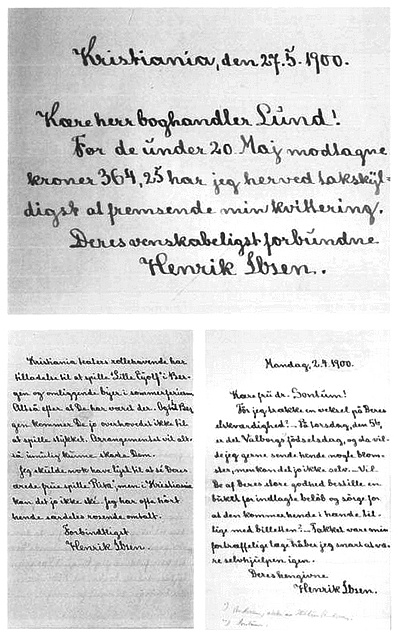 Kristiania, den 27.5.1900.
Kære herr boghandler Lund!
For de under 20 Maj modtagne
kroner 364,25 har jeg herved takskyl-
digst at fremsende min kvittering.
Deres venskabeligst forbundne
Henrik Ibsen.
Kristiania teaters rollehavende har
tilladelse til at spille "Lille Eyolf" i Ber-
gen og omliggende byer i sommerferien
Altså efter at De har været der. Og til Ber-
gen kommer De jo overhovedet ikke til
at spille stykket. Arrangementet vil alt-
så umulig kunne skade Dem.
Jeg skulde nok have lyst til at se Deres
ærede frue spille "Rita", men i Kristiania
kan det jo ikke ske. Jeg har ofte hørt
hende særdeles rosende omtalt.
Forbindtligst
Henrik Ibsen.
Mandag, 2.4.1900.
Kære frue dr. Sontum!
Tør jeg trække en veksel på Deres
elskværdighed? På torsdag, den 5te,
er det Valborgs fødselsdag, og da vil-
de jeg gerne sende hende nogle blom-
ster, men kan det jo ikke selv. Vil
De af Deres store godhed bestille en
buket for indlagte beløb og sørge for
at den kommer hende i hænde til-
lige med billetten? Takket være min
fortræffelige læge håber jeg snart at væ-
re selvhjulpen igen.
Deres hengivne
Henrik Ibsen.